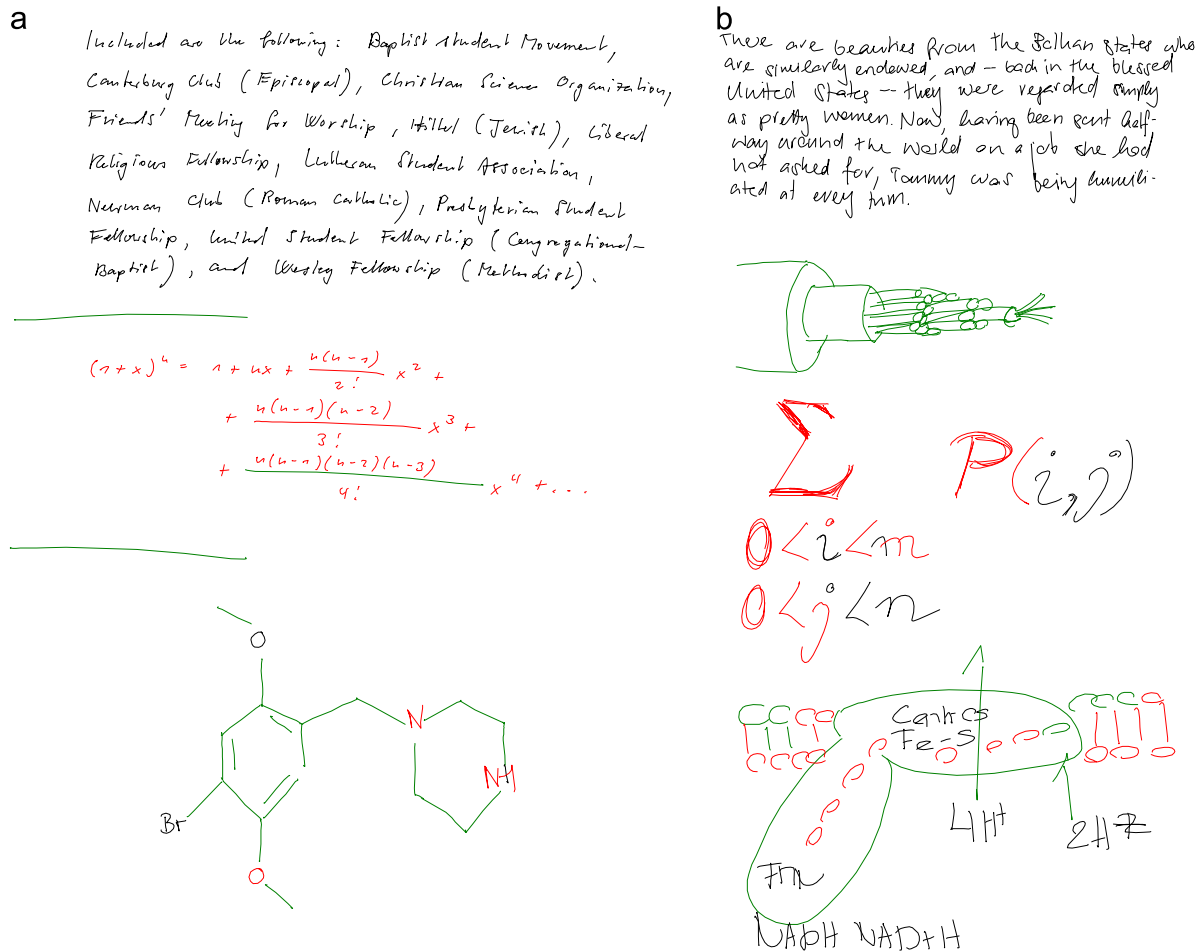 a
Included are the following: Baptist Student Movement,
Canterbury Club (Episcopal), Christian Science Organization,
Friends' Meeting for Worship, Hillel (Jewish), Liberal
Religious Fellowship, Lutheran Student Association,
Newman Club (Roman Catholic), Presbyterian Student
Fellowship, United Student Fellowship (Congregational-
Baptist), and Wesley Fellowship (Methodist).
(1+x)^n = 1 + nx + n(n-1)/2! x^2 +
+ n(n-1)(n-2)/3! x^3 +
+ n(n-1)(n-2)(n-3)/4! x^4 + ...
O
N
NH
Br
O
b
There are beauties from the Balkan states who
are similarly endowed, and - back in the blessed
United States -- they were regarded simply
as pretty women. Now, having been sent half-
way around the world on a job she had
not asked for, Tommy was being humili-
ated at every turn.
Σ P(i,j)
0<i<m
0<j<n
Fe-S
4H+
NADH NAD+H